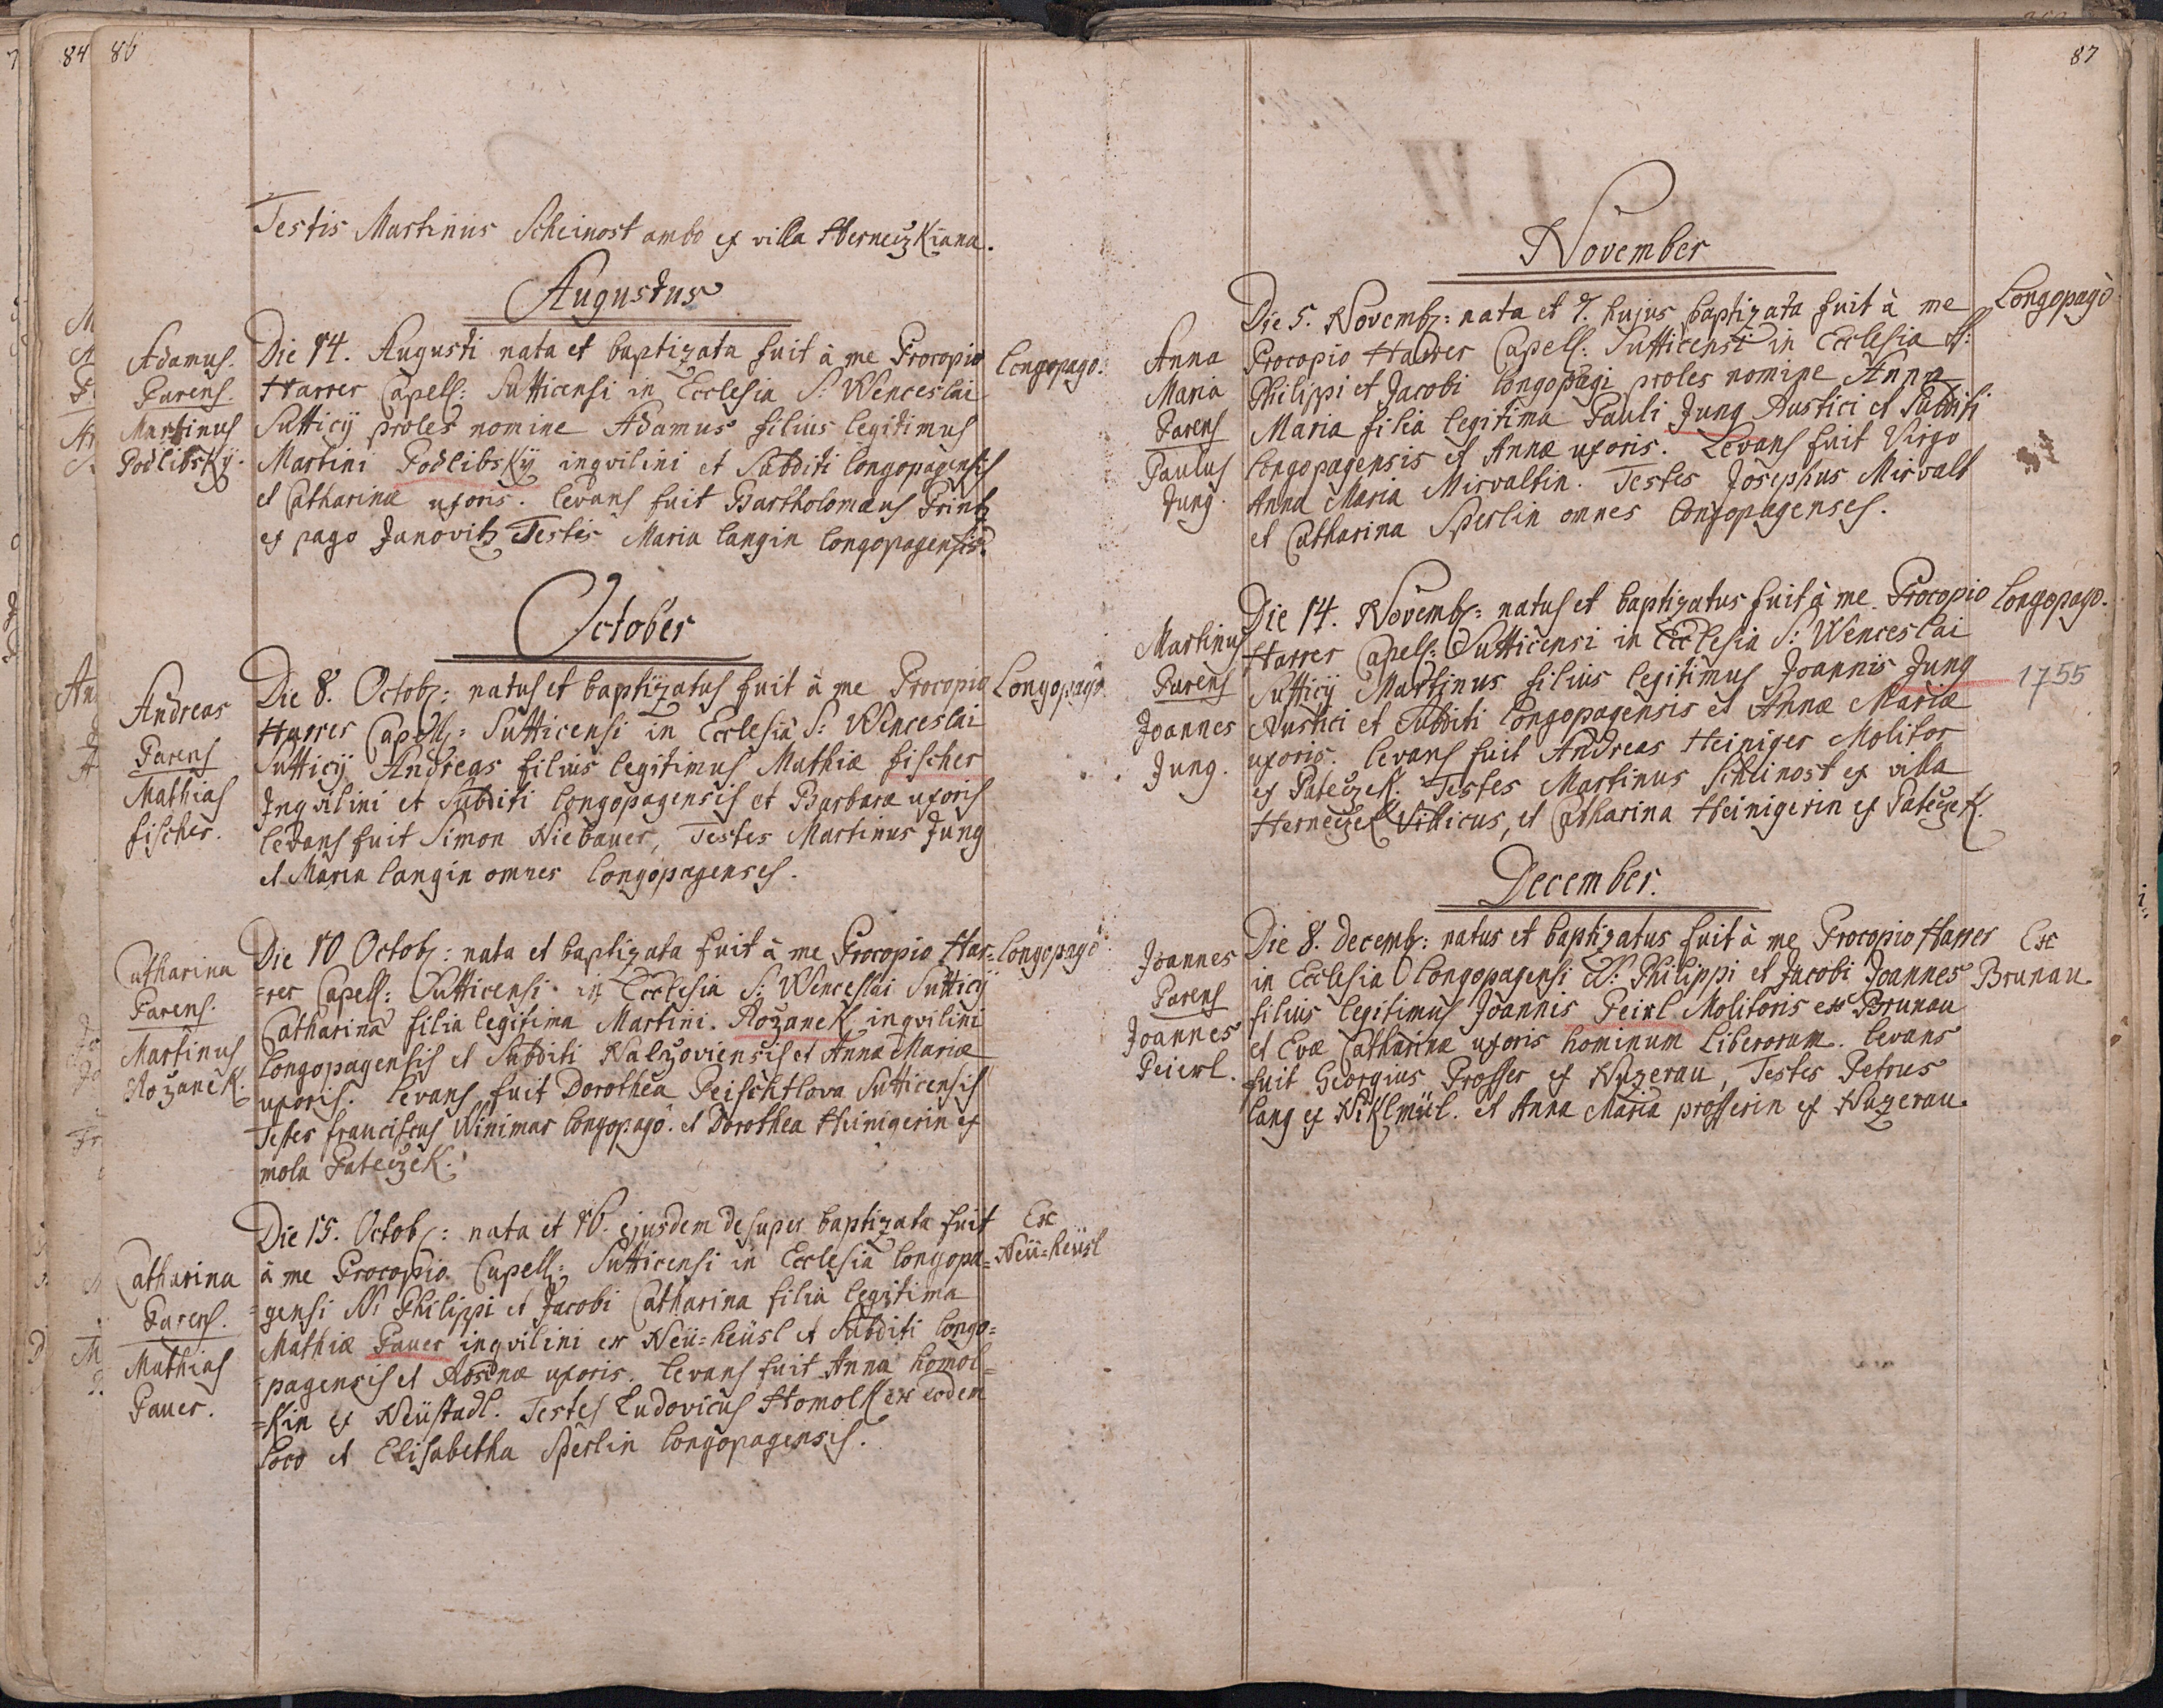 84 86
Testis Martinus Scheinost ambo ex villa Herneczkiana.
Augustus
Adamus.
Parens.
Martinus
Podlibskÿ.
Die 14. Augusti nata et baptizata fuit à me Procopio
Harrer Capell: Sutticensi in Ecclesia S: Wenceslai
Sutticÿ proles nomine Adamus filius legitimus
Martini Podlibskÿ inqvilini et Subditi Longopagensis
et Catharinæ uxoris. Levans fuit Bartholomæus Printz
ex pago Janovitz Testis Maria Langin Longopagensis.
Longopago.
October
Andreas
Parens
Mathias
fischer.
Die 8. Octob: natus et baptizatus fuit à me Procopio
Harrer Capell: Sutticensi in Ecclesia S: Wenceslai
Sutticÿ Andreas filius legitimus Mathiæ fischer
Inqvilini et Subditi Longopagensis et Barbaræ uxoris
levans fuit Simon Niebauer, Testes Martinus Jung
et Maria Langin omnes Longopagenses.
Longopagô
Catharina
Parens.
Martinus
Rožanek.
Die 10 Octob: nata et baptizata fuit à me Procopio Har=
=rer Capell: Sutticensi in Ecclesia S: Wenceslai Sutticÿ
Catharina filia legitima Martini Rožanek inqvilini
Longopagensis et Subditi Nalžoviensis et Annæ Mariæ
uxoris. Levans fuit Dorothea Peischtlova Sutticensis
Testes franciscus Winimar Longopagô. et Dorothea Heinigerin ex
mola Pateczek.
Longopagô
Catharina
Parens.
Mathias
Pauer.
Die 15. Octob: nata et 16. ejusdem desuper baptizata fuit
à me Procopio Capell: Sutticensi in Ecclesia Longopa=
=gensi SS: Philippi et Jacobi Catharina filia legitima
Mathiæ Pauer inqvilini ex Neü=heüsl et Subditi Longo=
=pagensis et Rosinæ uxoris. Levans fuit Anna homol=
=kin ex Neüstadl. Testes Ludovicus Homolk ex eodem
Loco et Elisabetha Sperlin Longopagensis.
Ex
Neü=heüsl
87
November
Anna
Maria
Parens
Paulus
Jung.
Die 5. Novemb: nata et 7. hujus baptizata fuit à me
Procopio Harrer Capell: Sutticensi in Ecclesia SS:
Philippi et Jacobi Longopagi proles nomine Anna
Maria filia legitima Pauli Jung Rustici et Subditi
Longopagensis et Annæ uxoris. Levans fuit Virgo
Anna Maria Mirvaltin. Testes Josephus Mirvalt
et Catharina Sperlin omnes Longopagenses.
Longopagò
Martinus
Parens
Joannes
Jung.
Die 14. Novemb: natus et baptizatus fuit à me Procopio
Harrer Capell: Sutticensi in Ecclesia S: Wenceslai
Sutticÿ Martinus filius legitimus Joannis Jung
Rustici et Subditi Longopagensis et Annæ Mariæ
uxoris. Levans fuit Andreas Heiniger Molitor
ex Pateczek. Testes Martinus Schlinost ex villa
Herneczek Villicus, et Catharina Heinigerin ex Pateczek.
Longopago.
1755
December.
Joannes
Parens
Joannes
Peierl.
Die 8. decemb: natus et baptizatus fuit à me Procopio Harrer
in Ecclesia Longopagensi SS: Philippi et Jacobi Joannes
filius legitimus Joannis Peirl Molitoris ex Brunau
et Evæ Catharinæ uxoris hominum Liberorum. Levans
fuit Georgius Prosser ex Nuzerau, Testes Petrus
Lang ex Niklmül. et Anna Maria prosserin ex Nuzerau.
Ex
Brunau.